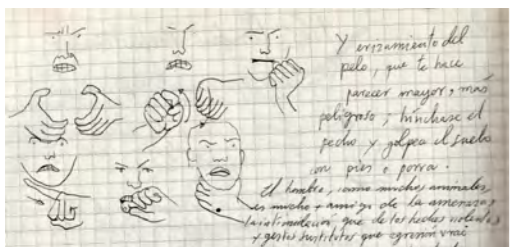 Y erizamiento del
pelo, que te hace
parecer mayor, más
peligroso; hínchase el
pecho y golpea el suelo
con pies o porra.
El hombre, como muchos animales,
es mucho + amigo de la amenaza,
la intimidación que de los hechos violentos
y gestos sustitutos que